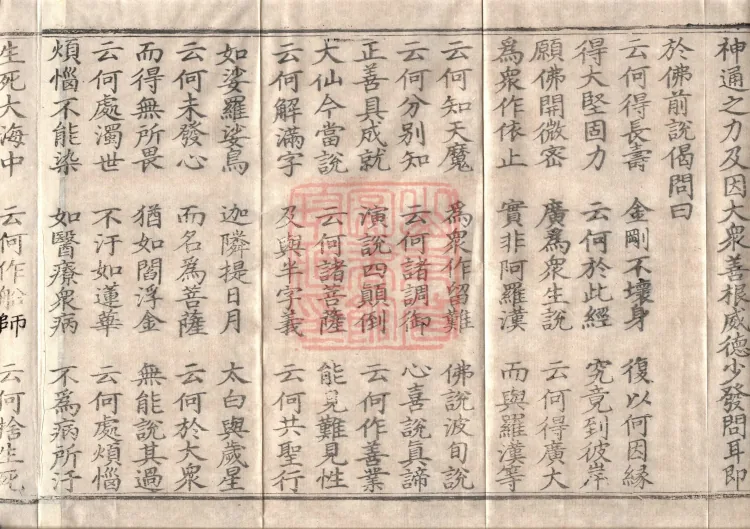 神通之力及因大衆善根威德少發問耳即
於佛前說偈問曰
云何得長壽 金剛不壞身 復以何因緣
得大堅固力 云何於此經 究竟到彼岸
願佛開微密 廣為衆生說 云何得廣大
為衆作依止 實非阿羅漢 而與羅漢等
云何知天魔 為衆作留難 佛說波旬說
云何分別知 云何諸調御 心喜說真諦
正善具成就 演說四顛倒 云何作善業
大仙今當說 云何諸菩薩 能見難見性
云何解滿字 及與半字義 云何共聖行
如娑羅娑鳥 迦隣提日月 太白與歲星
云何未發心 而名為菩薩 云何於大衆
而得無所畏 猶如閻浮金 無能說其過
云何處濁世 不汙如蓮華 云何處煩惱
煩惱不能染 如醫療衆病 不為病所汙
生死大海中 云何作船師 云何捨生死